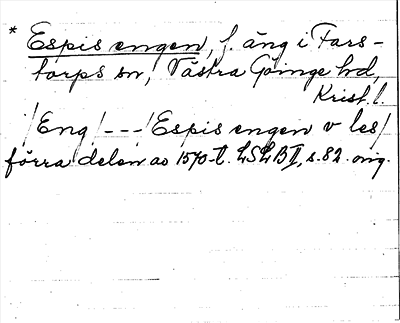 * Espis engen, f. äng i Fars-
torps sn, Västra Göinge hd,
Krist. l.
/Eng/ --- /Espis engen v les/
förra delen av 1570-t. LSLB II, s. 82. orig.